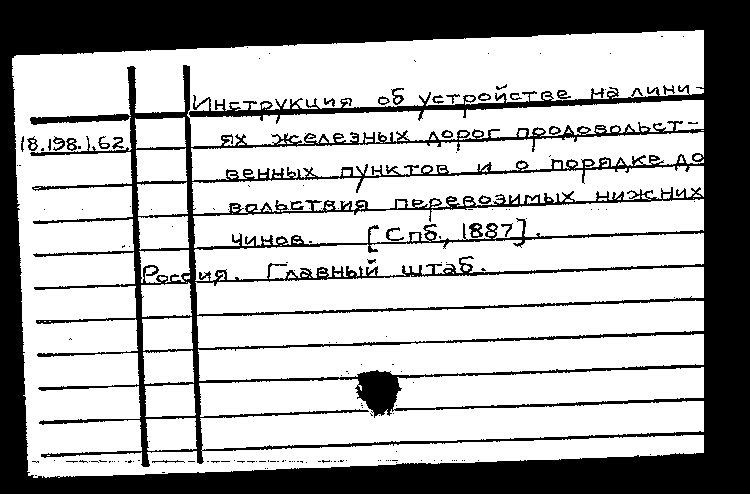 Инструкция об устройстве на лини-
18.198.1.62. ях железных дорог продовольст-
венных пунктов и о порядке до
вольствия перевозимых нижних
чинов. [Спб., 1887].
Россия. Главный штаб.